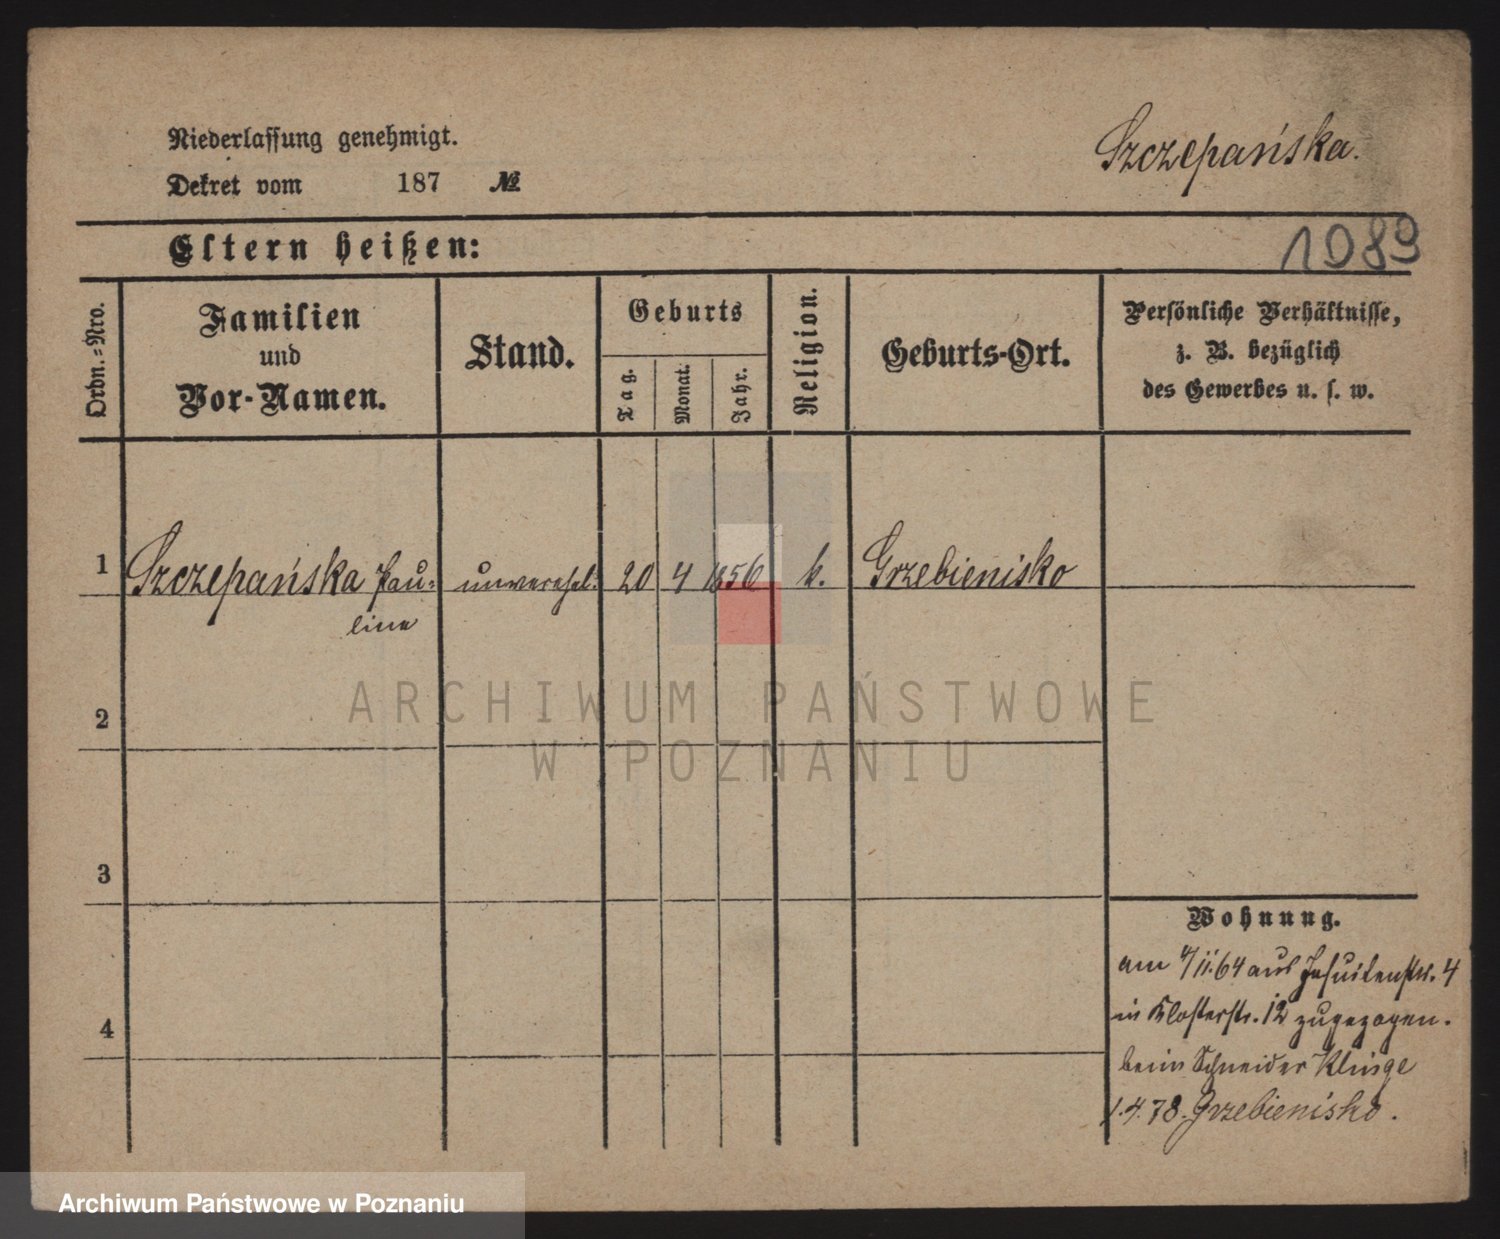 Niederlassung genehmigt.
Szczepańska.
Dekret vom 187 №
Eltern heißen:
1089
Ordn.=Nro.
Familien
und
Vor-Namen.
Stand.
Geburts
Tag.
Monat.
Jahr.
Religion.
Geburts-Ort.
Persönliche Verhältnisse,
z. B. bezüglich
des Gewerbes u. s. w.
1 Szczepańska Pau= unverehel: 20 4 1856 k. Grzebienisko
line
2
3
4
Wohnung.
am 4/11.64 aus Jesuitenstr. 4
in Klosterstr. 12 zugezogen.
beim Schneider Klinge
1.4.78. Grzebienisko.
ARCHIWUM PAŃSTWOWE
W POZNANIU
Archiwum Państwowe w Poznaniu